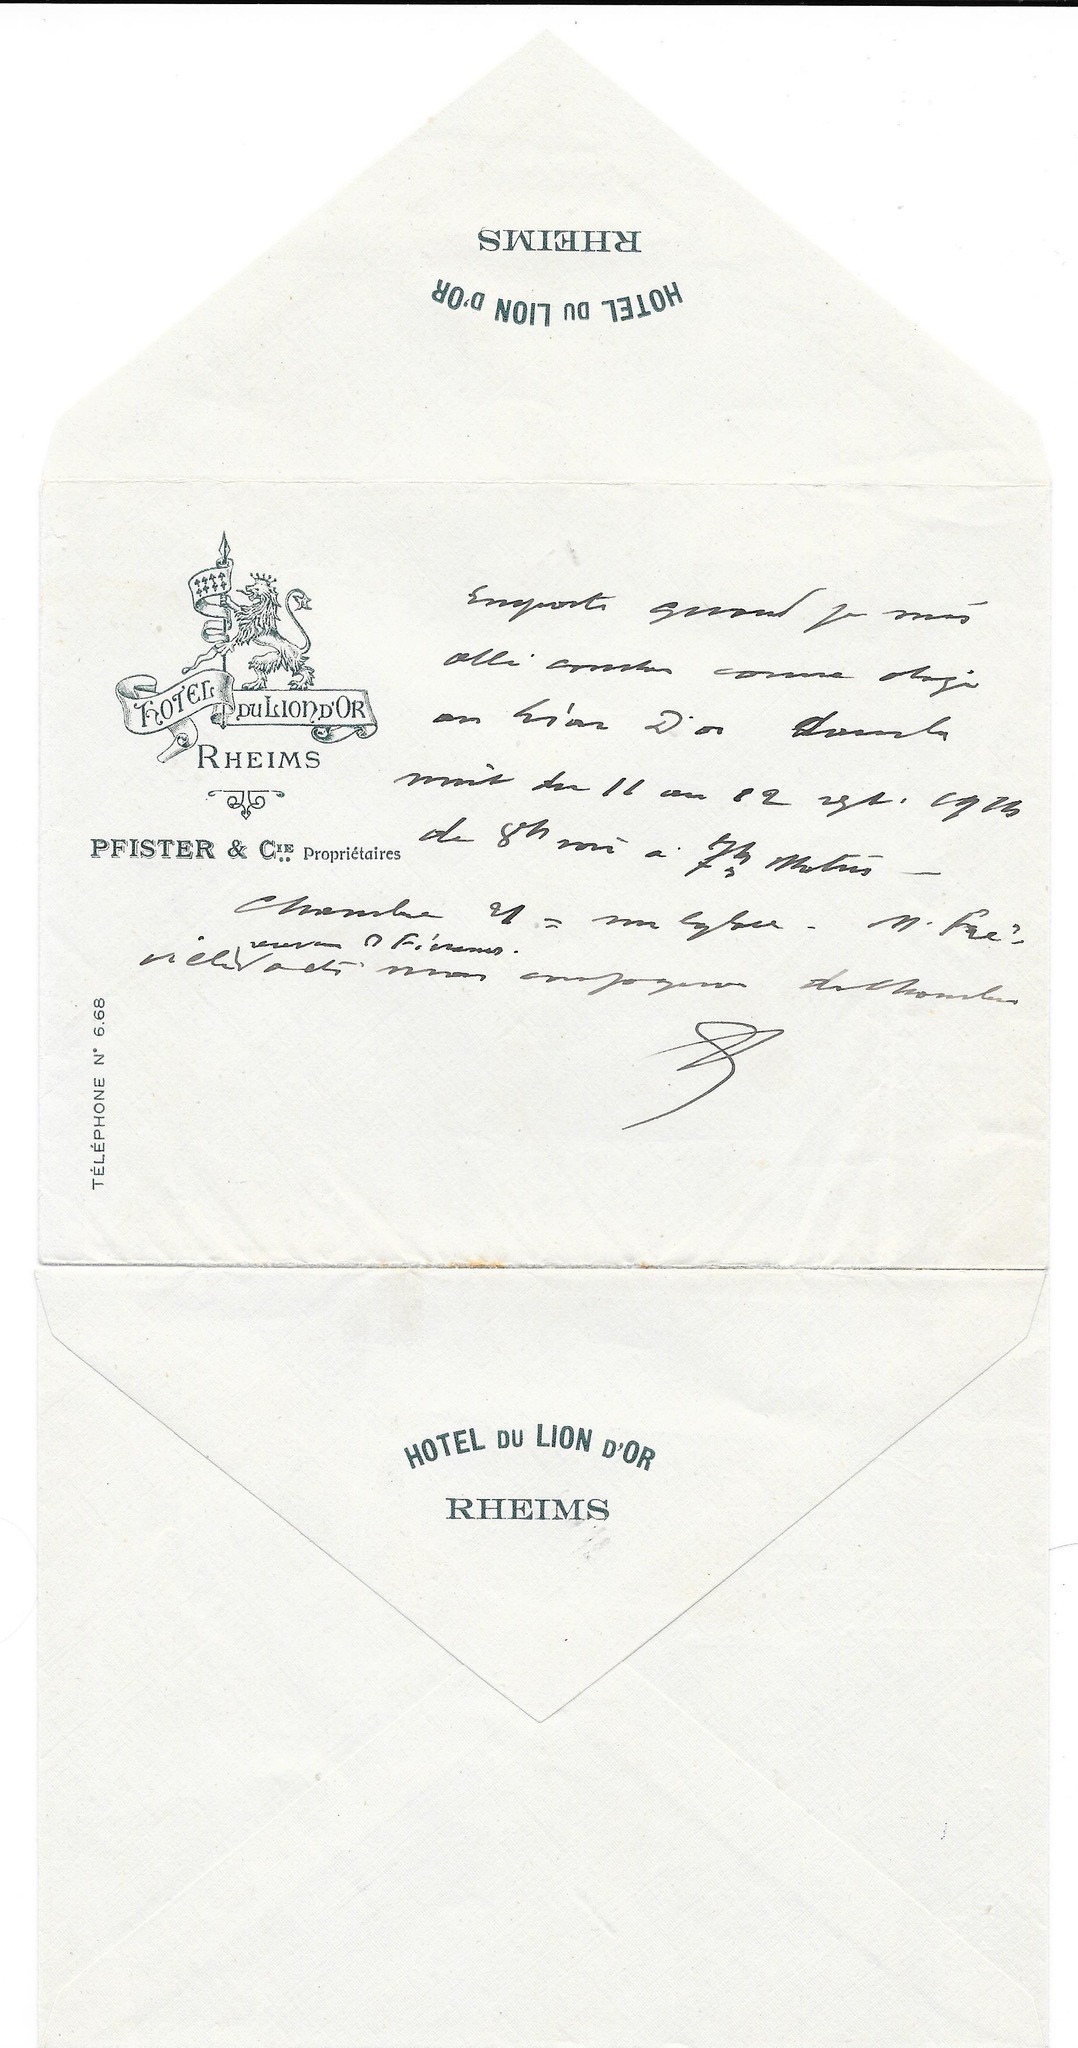 RHEIMS
HOTEL DU LION D'OR
HOTEL DU LION D'OR
RHEIMS
PFISTER & CIE Propriétaires
TÉLÉPHONE N° 6.68
Emporté quand je suis
allé coucher comme otage
au Lion D'or dans la
nuit du 11 au 12 sept. 1914
de 8h soir à 7h Matin —
Chambre 21 = - M.
receveur
a été mon compagnon de chambre
HOTEL DU LION D'OR
RHEIMS